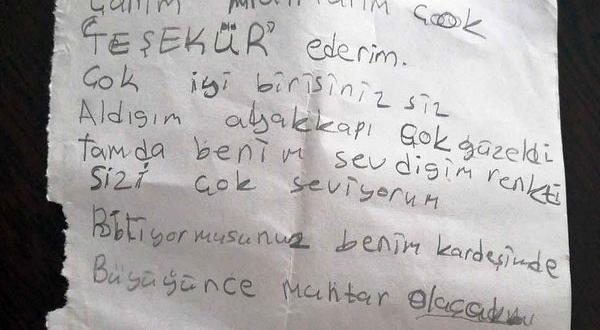 Canım Muhtarım Çook
"TEŞEKÜR" ederim.
Çok iyi birisiniz siz
Aldıgım ayakkapı çok güzeldi
tamda benim sevdigim renkti
Sizi çok seviyorum
Biliyormusunuz benim kardeşimde
Büyüğünce muhtar olacak